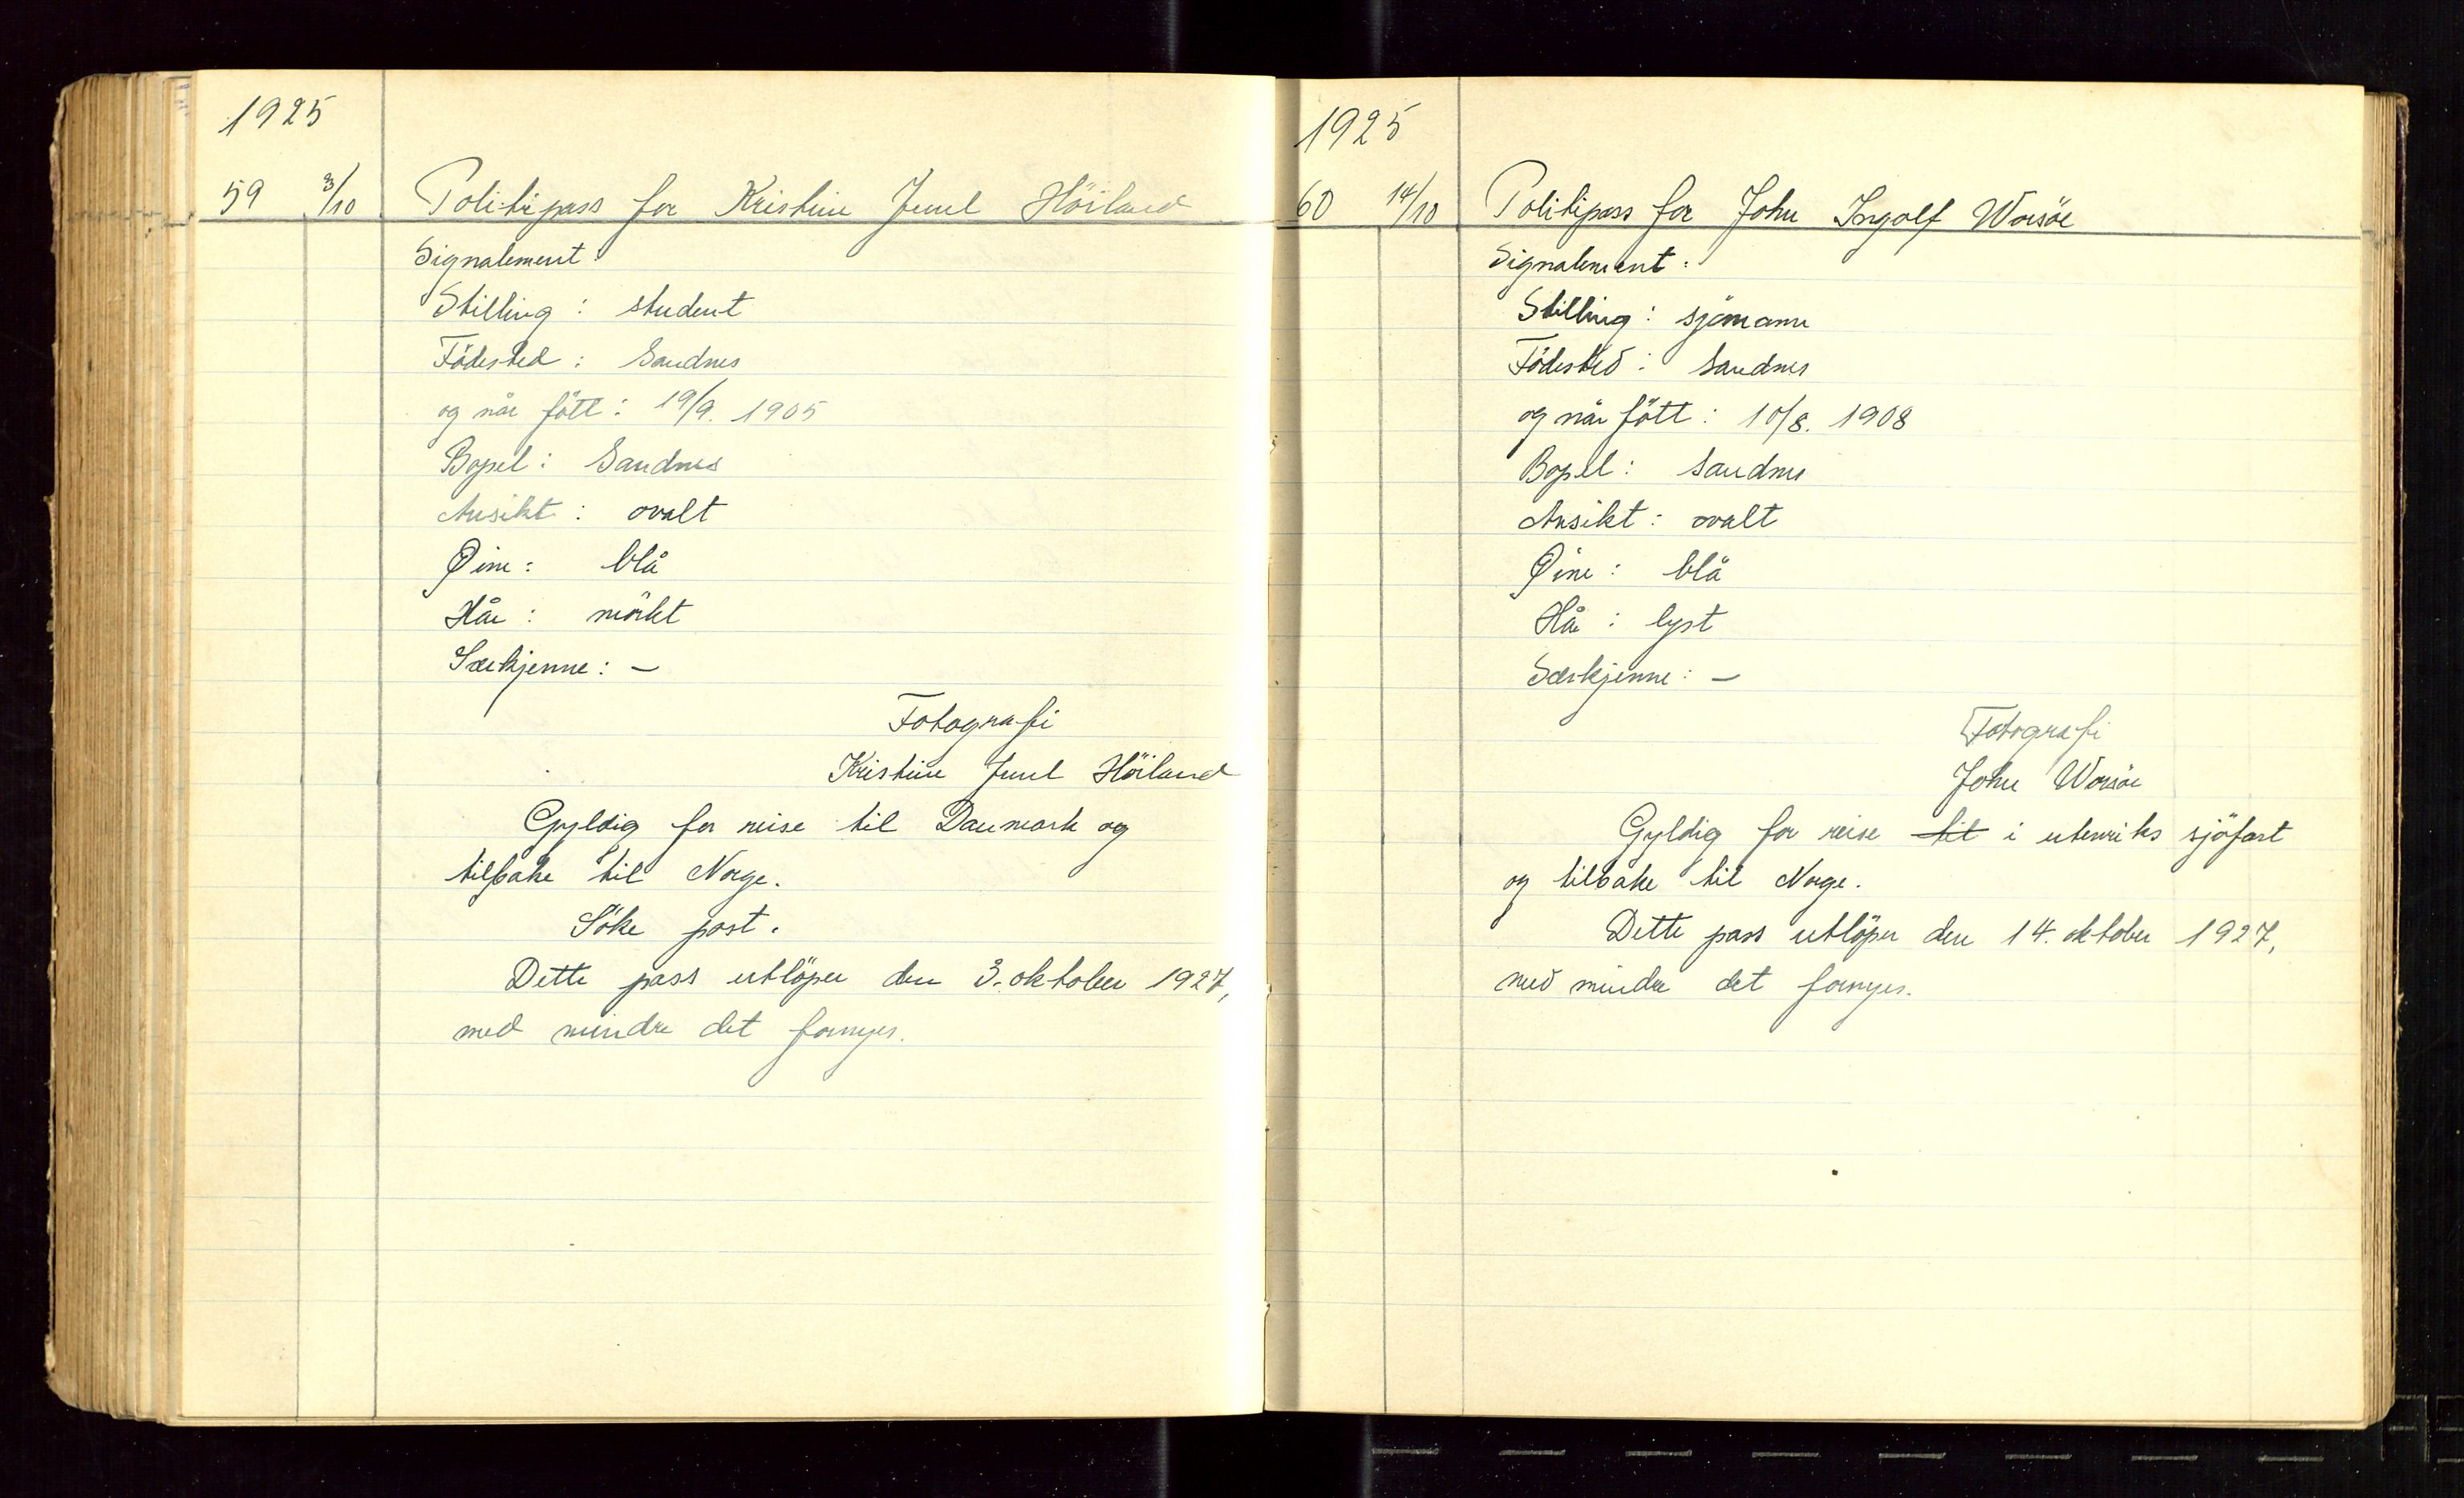 1925
59 3/10 Politipass for Kristine Juul Höiland
Signalement:
Stilling: student
Födested: Sandnes
og når fött: 19/9. 1905
Bopel: Sandnes
Ansikt: ovalt
Øine: blå
Hår: mörkt
Særkjenne: —
Fotografi
Kristine Juul Höiland
Gyldig for reise til Danmark og
tilbake til Norge.
Söke post.
Dette pass utlöper den 3. oktober 1927,
med mindre det fornyes.
1925
60 14/10 Politipass for John Ingolf Worsöe
Signalement:
Stilling: sjömann
Födested: Sandnes
og når fött: 10/8. 1908
Bopel: Sandnes
Ansikt: ovalt
Øine: blå
Hår: lyst
Særkjenne: —
Fotografi
John Worsöe
Gyldig for reise til i utenriks sjöfart
og tilbake til Norge.
Dette pass utlöper den 14. oktober 1927,
med mindre det fornyes.